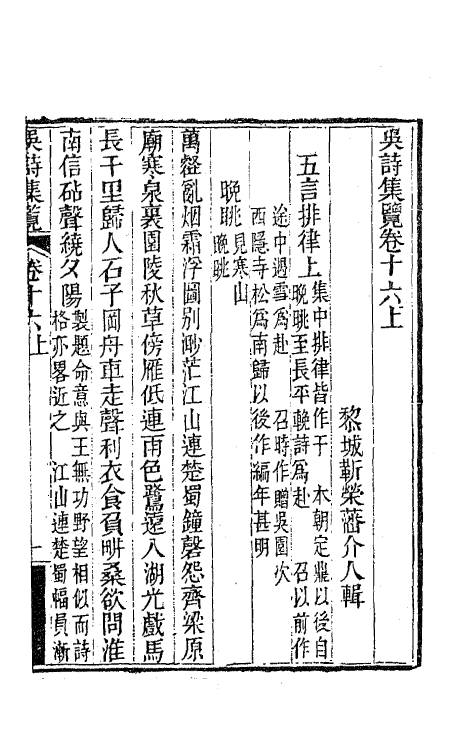 吳詩集覽卷十六上
黎城靳榮藩介人輯
五言排律上
集中排律皆作于 本朝定鼎以後自
晩眺至長平輓詩爲赴 召以前作
途中遇雪爲赴 召時作贈吳園次
西隱寺松爲南歸以後作編年甚明
晩眺
見寒山
晩眺
萬壑亂烟霜浮圖别渺茫江山連楚蜀鐘磬怨齊梁原
廟寒泉裏園陵秋草傍雁低連雨色鷺遠入湖光戲馬
長干里歸人石子岡舟車走聲利衣食負畊桑欲問淮
南信砧聲繞夕陽
製題命意與王無功野望相似而詩
格亦畧近之 江山連楚蜀幅員漸
吳詩集覽 卷十六上 一